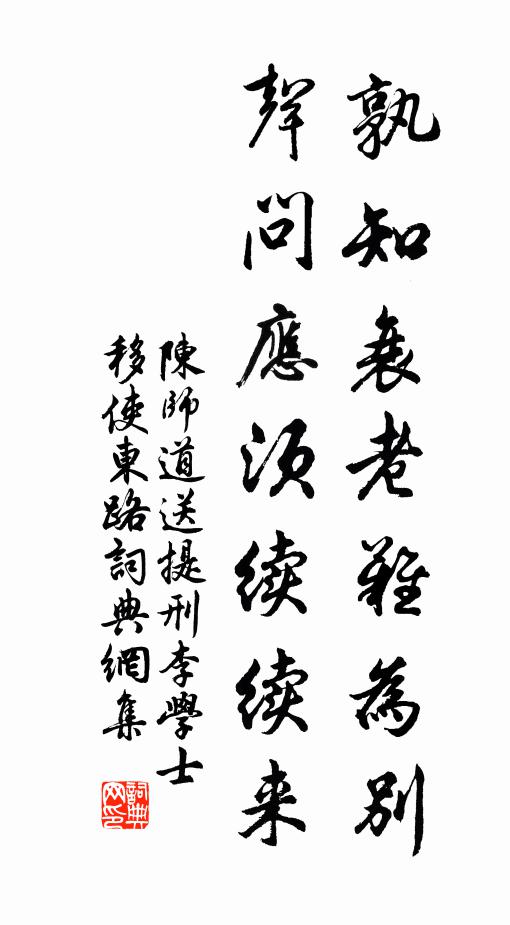 孰知衰老難為别
聲問應須續續来
陳師道送提刑李學士
移使東路詞典網集
詞典网印